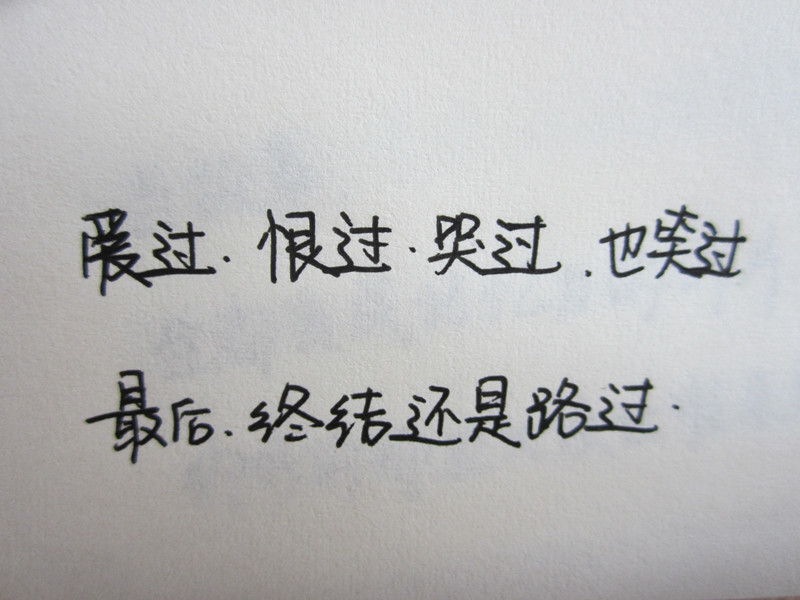 爱过.恨过.哭过.也笑过
最后.终结还是路过.